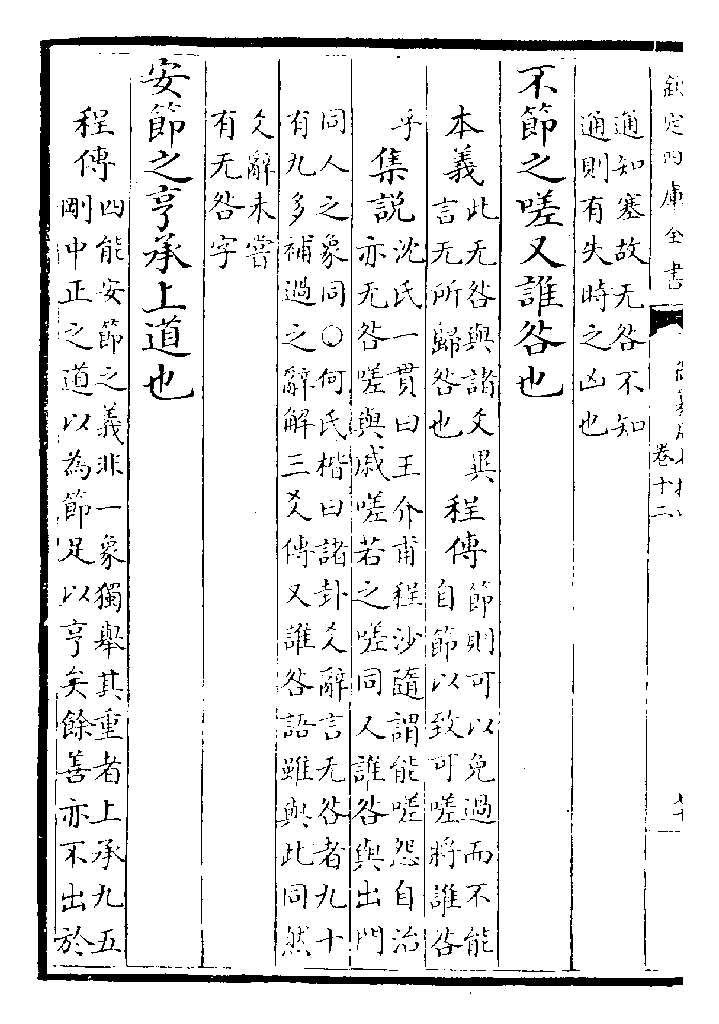 欽定四庫全書
卷十二
通知塞故无咎不知
通則有失時之凶也
不節之嗟又誰咎也
本義此无咎與諸爻異
言无所歸咎也
程傳節則可以免過而不能
自節以致可嗟將誰咎
乎
集說沈氏一貫曰王介甫程沙隨謂能嗟怨自治
亦无咎嗟與戚嗟若之嗟同人誰咎與出門
同人之象同○何氏楷曰諸卦爻辭言无咎者九十
有九多補過之辭解三爻傳又誰咎語雖與此同然
爻辭未嘗
有无咎字
安節之亨承上道也
程傳四能安節之義非一象獨舉其重者上承九五
剛中正之道以為節足以亨矣餘善亦不出於